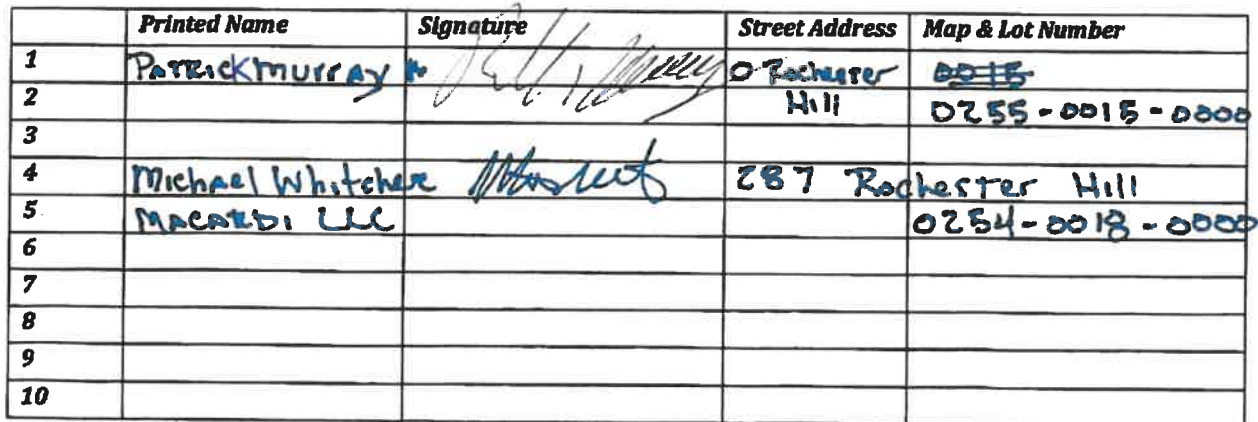 Printed Name Signature Street Address Map & Lot Number
1 Patrick Murray 0 Rochester 0015
2 Hill 0255-0015-0000
3
4 Michael Whitcher 287 Rochester Hill
5 MACARDI LLC 0254-0018-0000
6
7
8
9
10